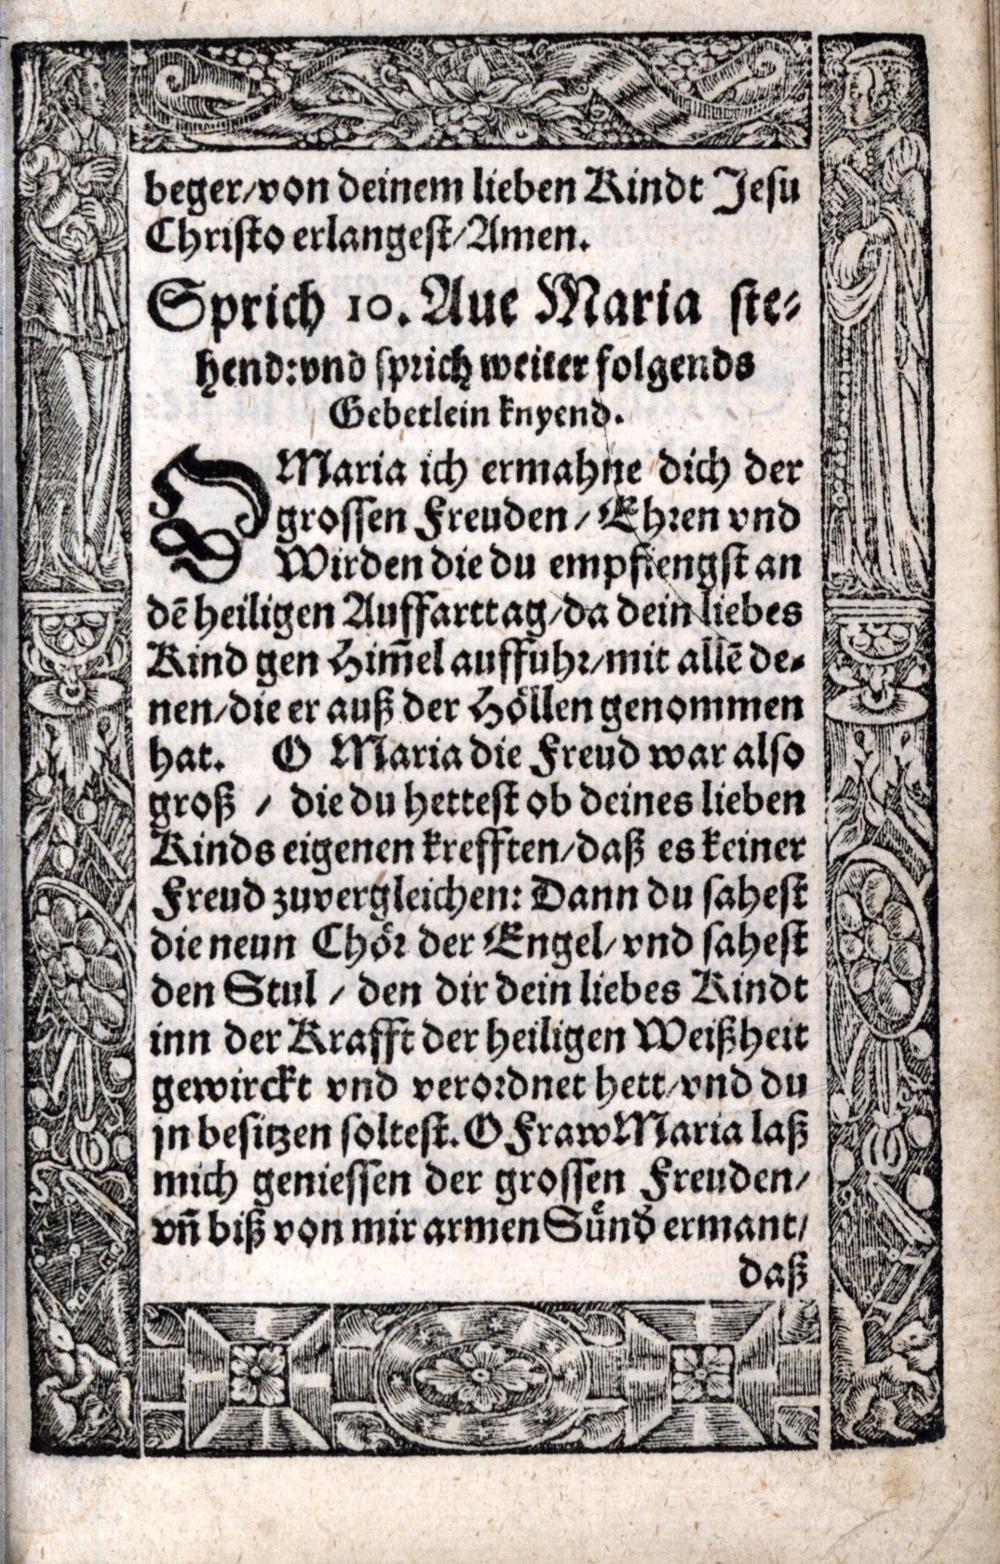 beger/von deinem lieben Kindt Jesu
Christo erlangest/Amen.
Sprich 10. Aue Maria ste-
hend: vnd sprich weiter folgends
Gebetlein knyend.
O Maria ich ermahne dich der
grossen Freuden / Ehren vnd
Wirden die du empfiengst an
dē heiligen Auffarttag/da dein liebes
Kind gen Him̄el auffuhr/mit allē de-
nen/die er auß der Hoͤllen genommen
hat. O Maria die Freud war also
groß / die du hettest ob deines lieben
Kinds eigenen krefften/daß es keiner
Freud zuvergleichen: Dann du sahest
die neun Choͤr der Engel/ vnd sahest
den Stul / den dir dein liebes Kindt
inn der Krafft der heiligen Weißheit
gewirckt vnd verordnet hett/vnd du
jn besitzen soltest. O Fraw Maria laß
mich geniessen der grossen Freuden/
vn̄ biß von mir armen Suͤnd̕ ermant/
daß